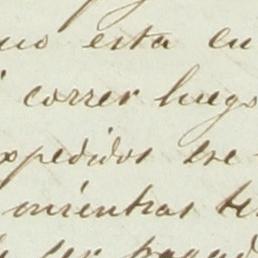 no esta en
correr luego
xpedidos ese
mientras te
ser pagad